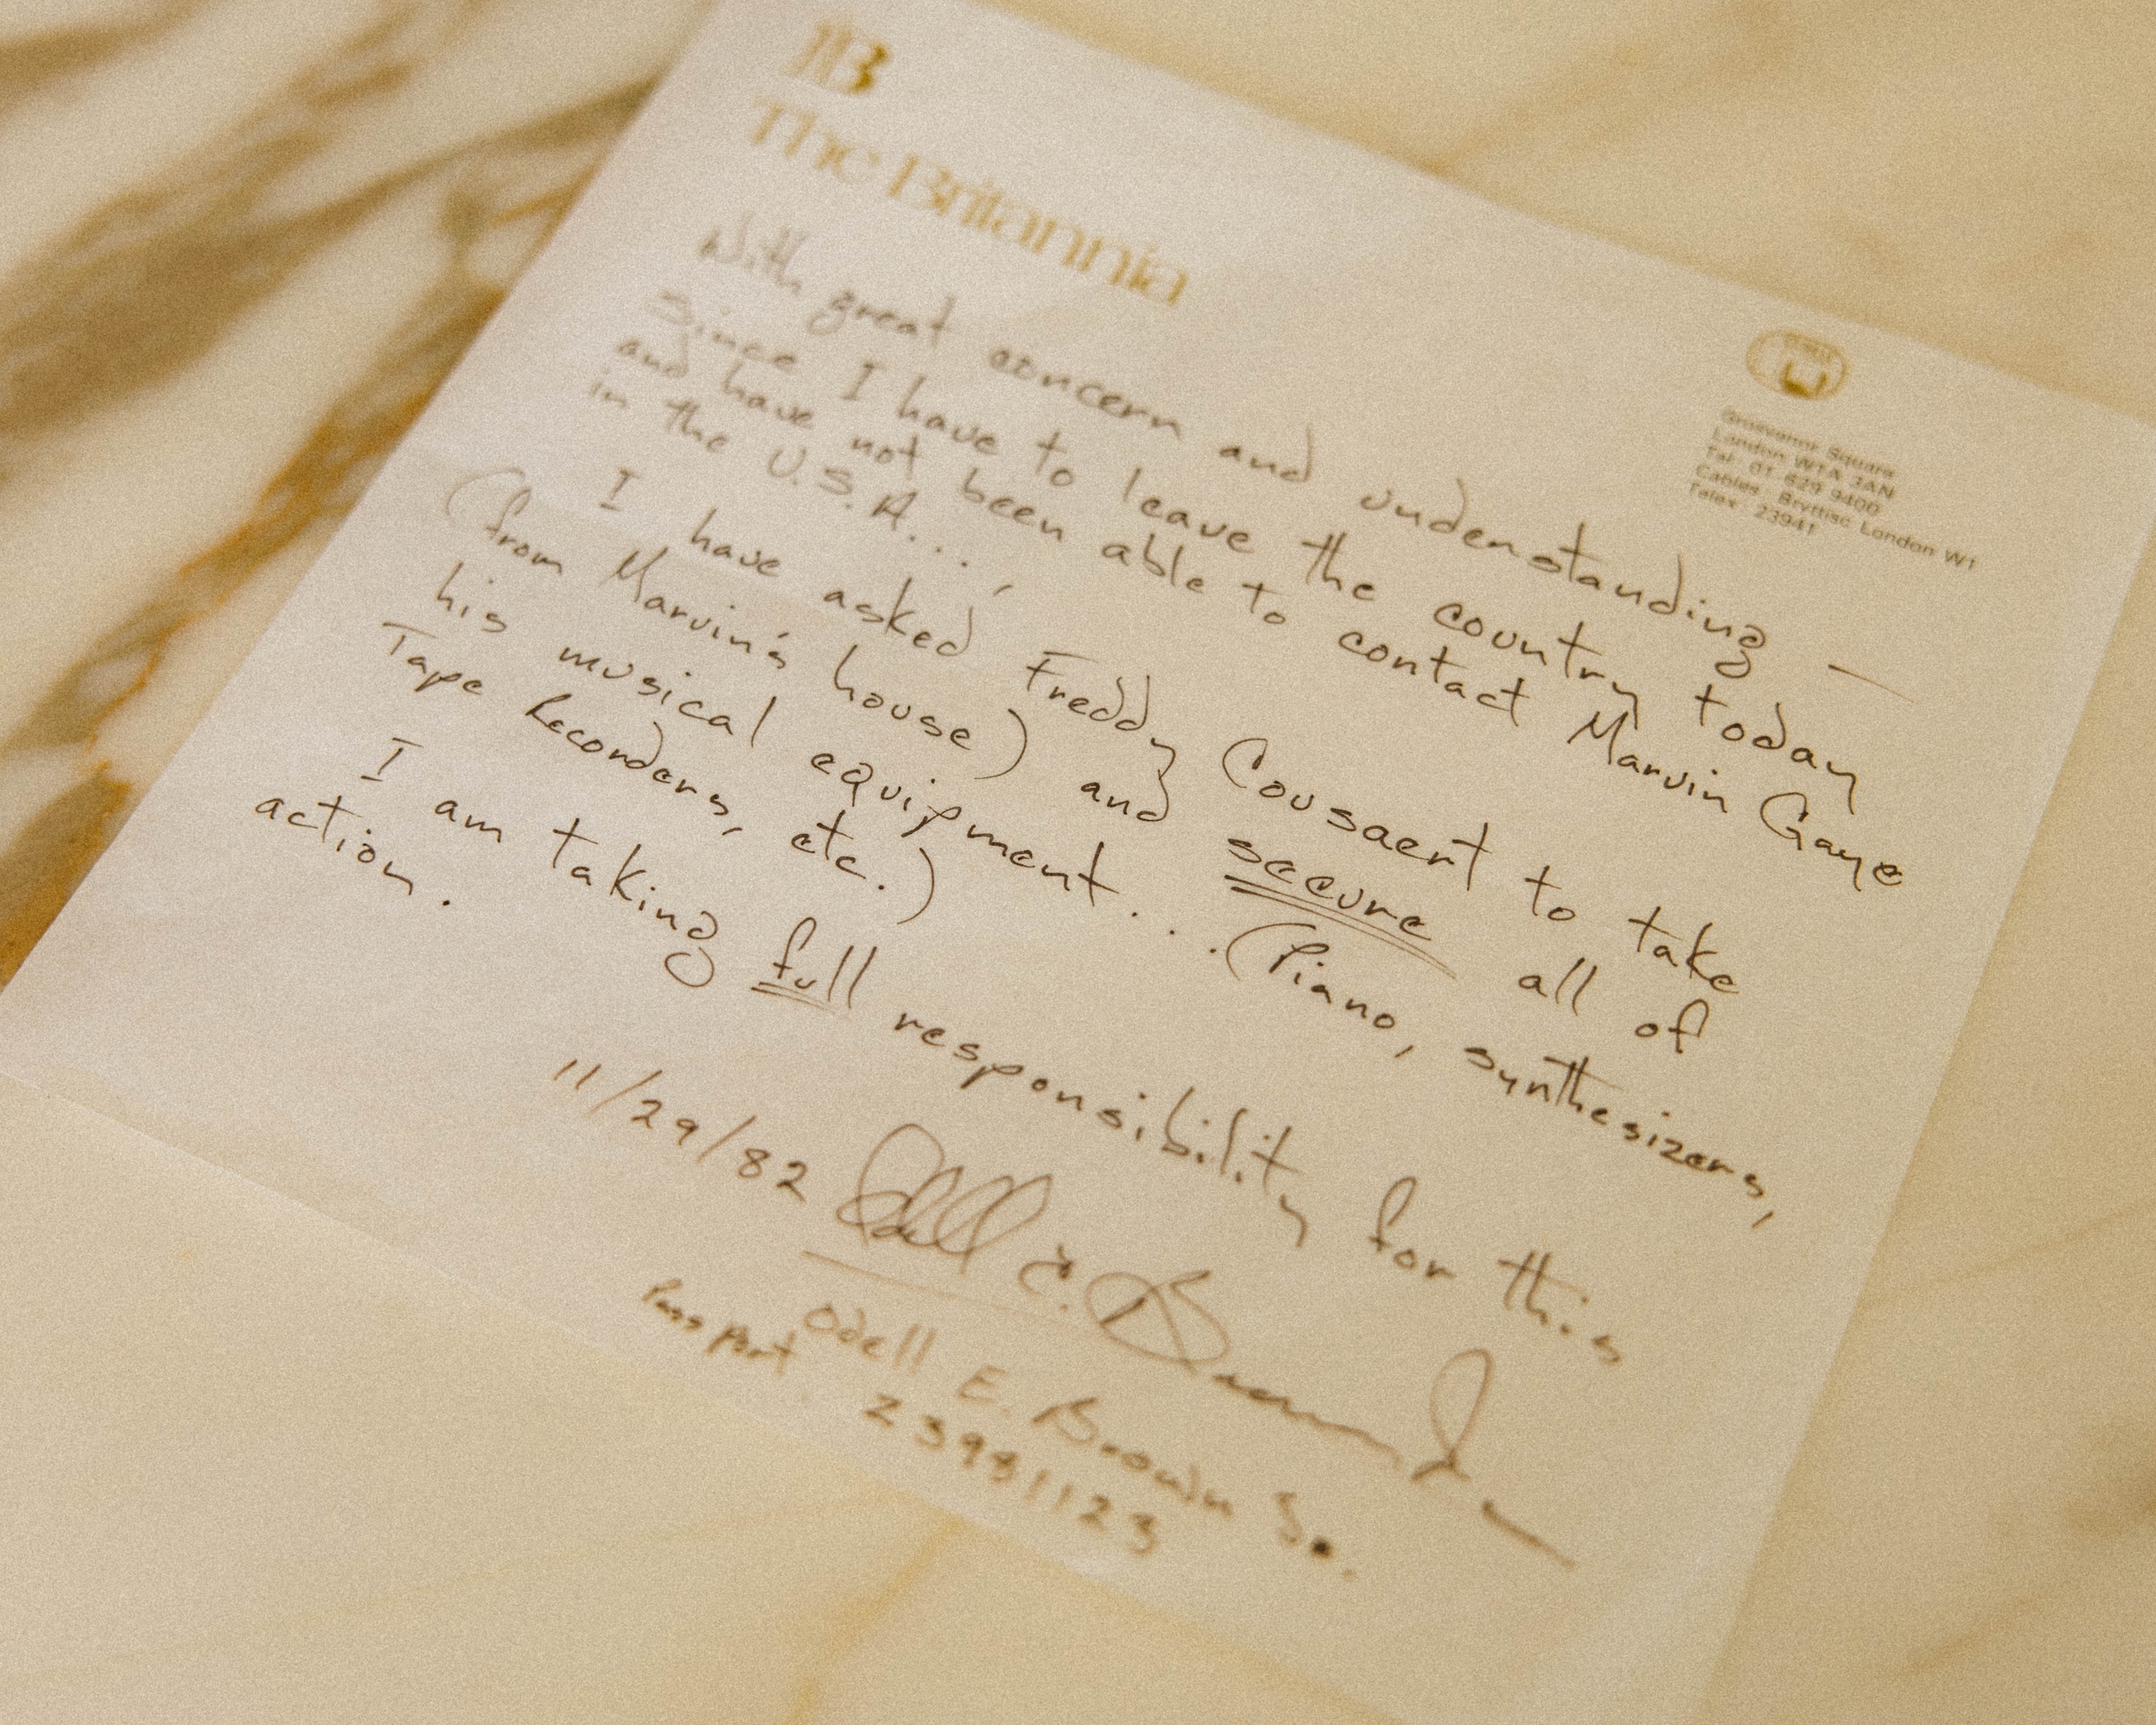 B
The Britannia
Grosvenor Square
London W1A 3AN
Tel: 01 629 9400
Cables: Bryttisc London W1
Telex: 23941
With great concern and understanding —
Since I have to leave the country today
and have not been able to contact Marvin Gaye
in the U.S.A....,
I have asked Freddy Cousaert to take
(from Marvin's house) and secure all of
his musical equipment...(Piano, synthesizers,
Tape Recorders, etc.)
I am taking full responsibility for this
action.
11/29/82 Odell E. Brown Jr.
Odell E. Brown Jr.
Pass Port 23981123